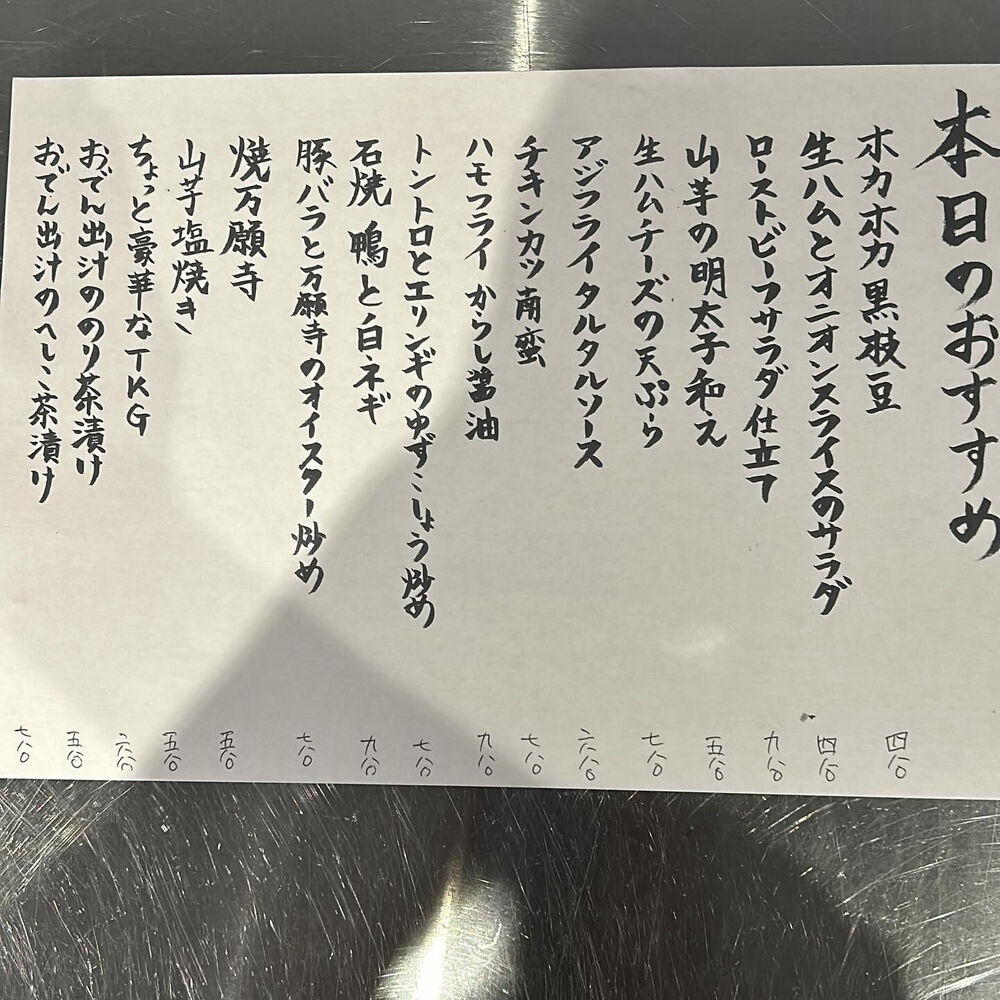 本日のおすすめ
ホカホカ黒枝豆 四八〇
生ハムとオニオンスライスのサラダ 四八〇
ローストビーフサラダ仕立て 九八〇
山芋の明太子和え 五八〇
生ハムチーズの天ぷら 七八〇
アジフライタルタルソース 六八〇
チキンカツ南蛮 七八〇
ハモフライ からし醤油 九八〇
トントロとエリンギのゆずこしょう炒め 七八〇
石焼 鴨と白ネギ 九八〇
豚バラと万願寺のオイスター炒め 七八〇
焼万願寺 五八〇
山芋塩焼き 五八〇
ちょっと豪華なTKG 六八〇
おでん出汁ののり茶漬け 五八〇
おでん出汁のへしこ茶漬け 七八〇